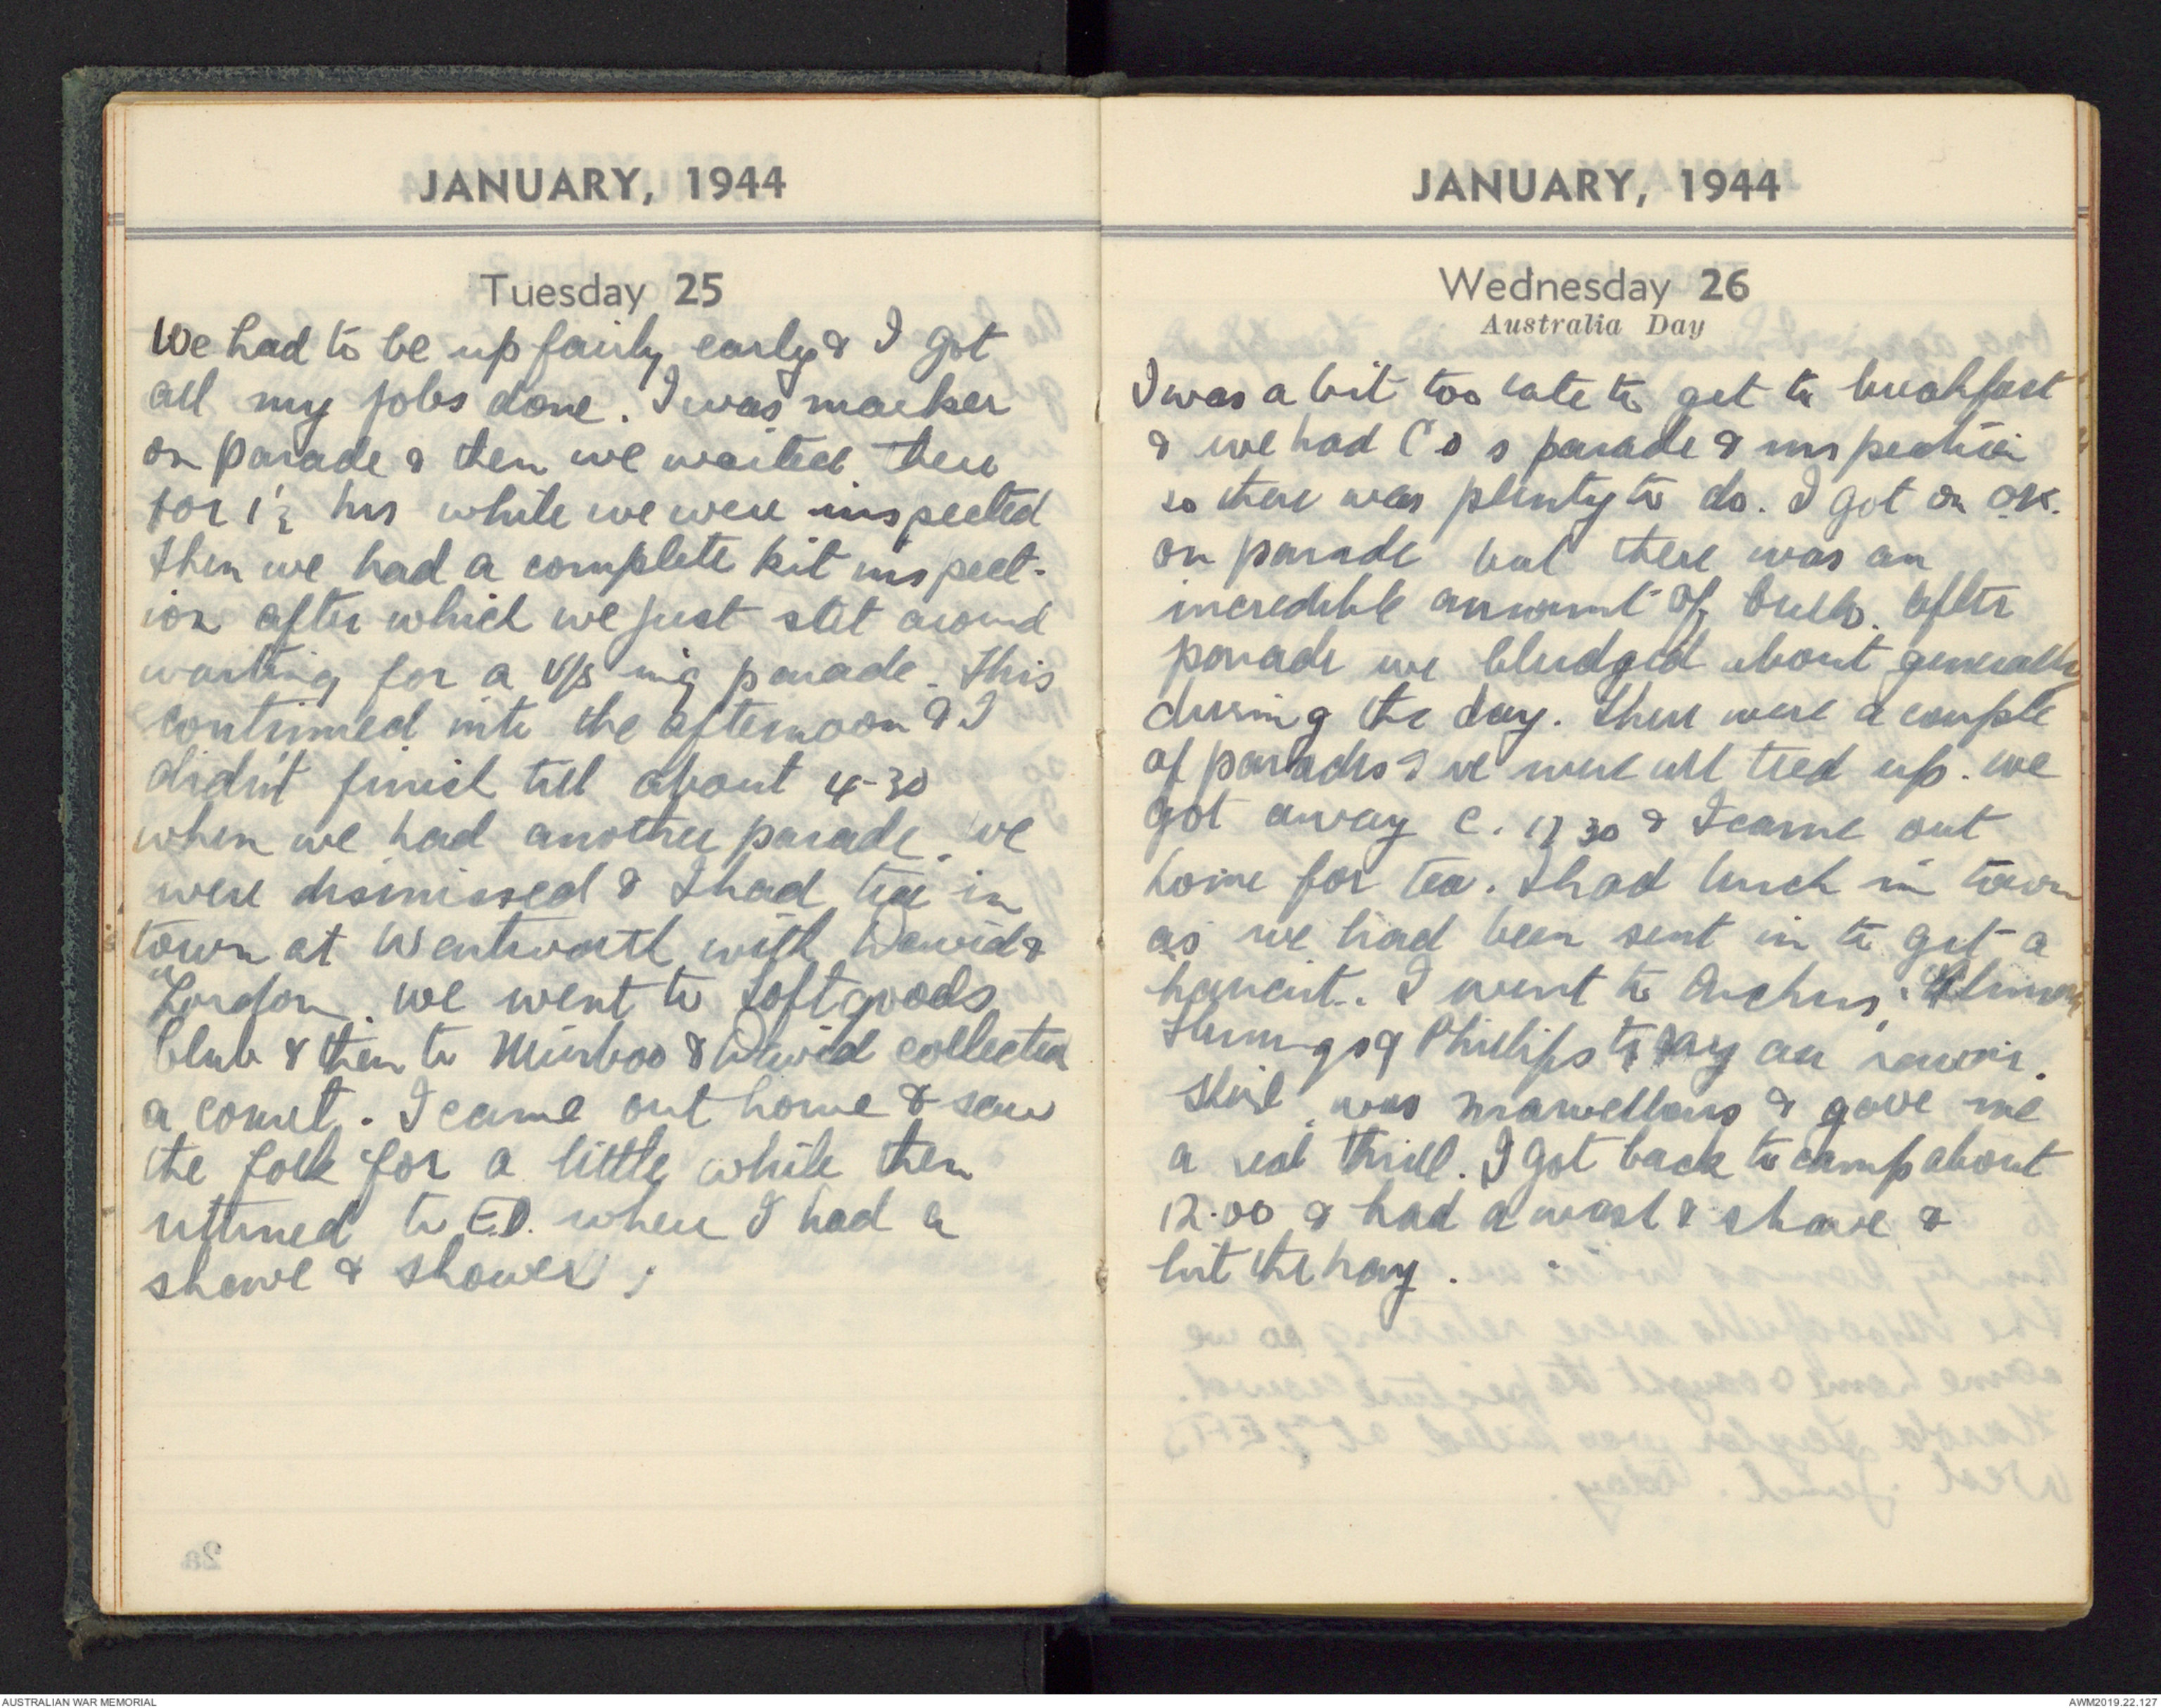 JANUARY, 1944
Tuesday 25
We had to be up fairly early & I got
all my jobs done. I was marker
on parade & then we waited there
for 1½ hrs while we were inspected
Then we had a complete kit inspect-
ion after which we just sat around
waiting for a parade. This
continued into the afternoon & I
didn't finish till about 4-30
when we had another parade. We
were dismissed & I had tea in
town at Wentworth with David &
Gordon. We went to Softgoods
Club & then to Mirboo & David collected
a comet. I came out home & saw
the folk for a little while then
returned to E.D. where I had a
shave & shower.
JANUARY, 1944
Wednesday 26
Australia Day
I was a bit too late to get to breakfast
& we had C.O's parade & inspection
so there was plenty to do. I got on OK.
on parade but there was an
incredible amount of bulls. After
parade we bludged about generally
during the day. There were a couple
of parades & we were all tied up. We
got away c. 1730 & I came out
home for tea. I had lunch in town
as we had been sent in to get a
haircut. I went to
& Phillips
was marvellous & gave me
a real thrill. I got back to camp about
12.00 & had a wash & shave &
hit the hay.
AUSTRALIAN WAR MEMORIAL
AWM2019.22.127